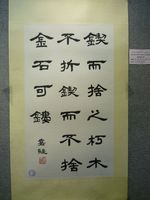 鍥而捨之朽木
不折鍥而不捨
金石可鏤